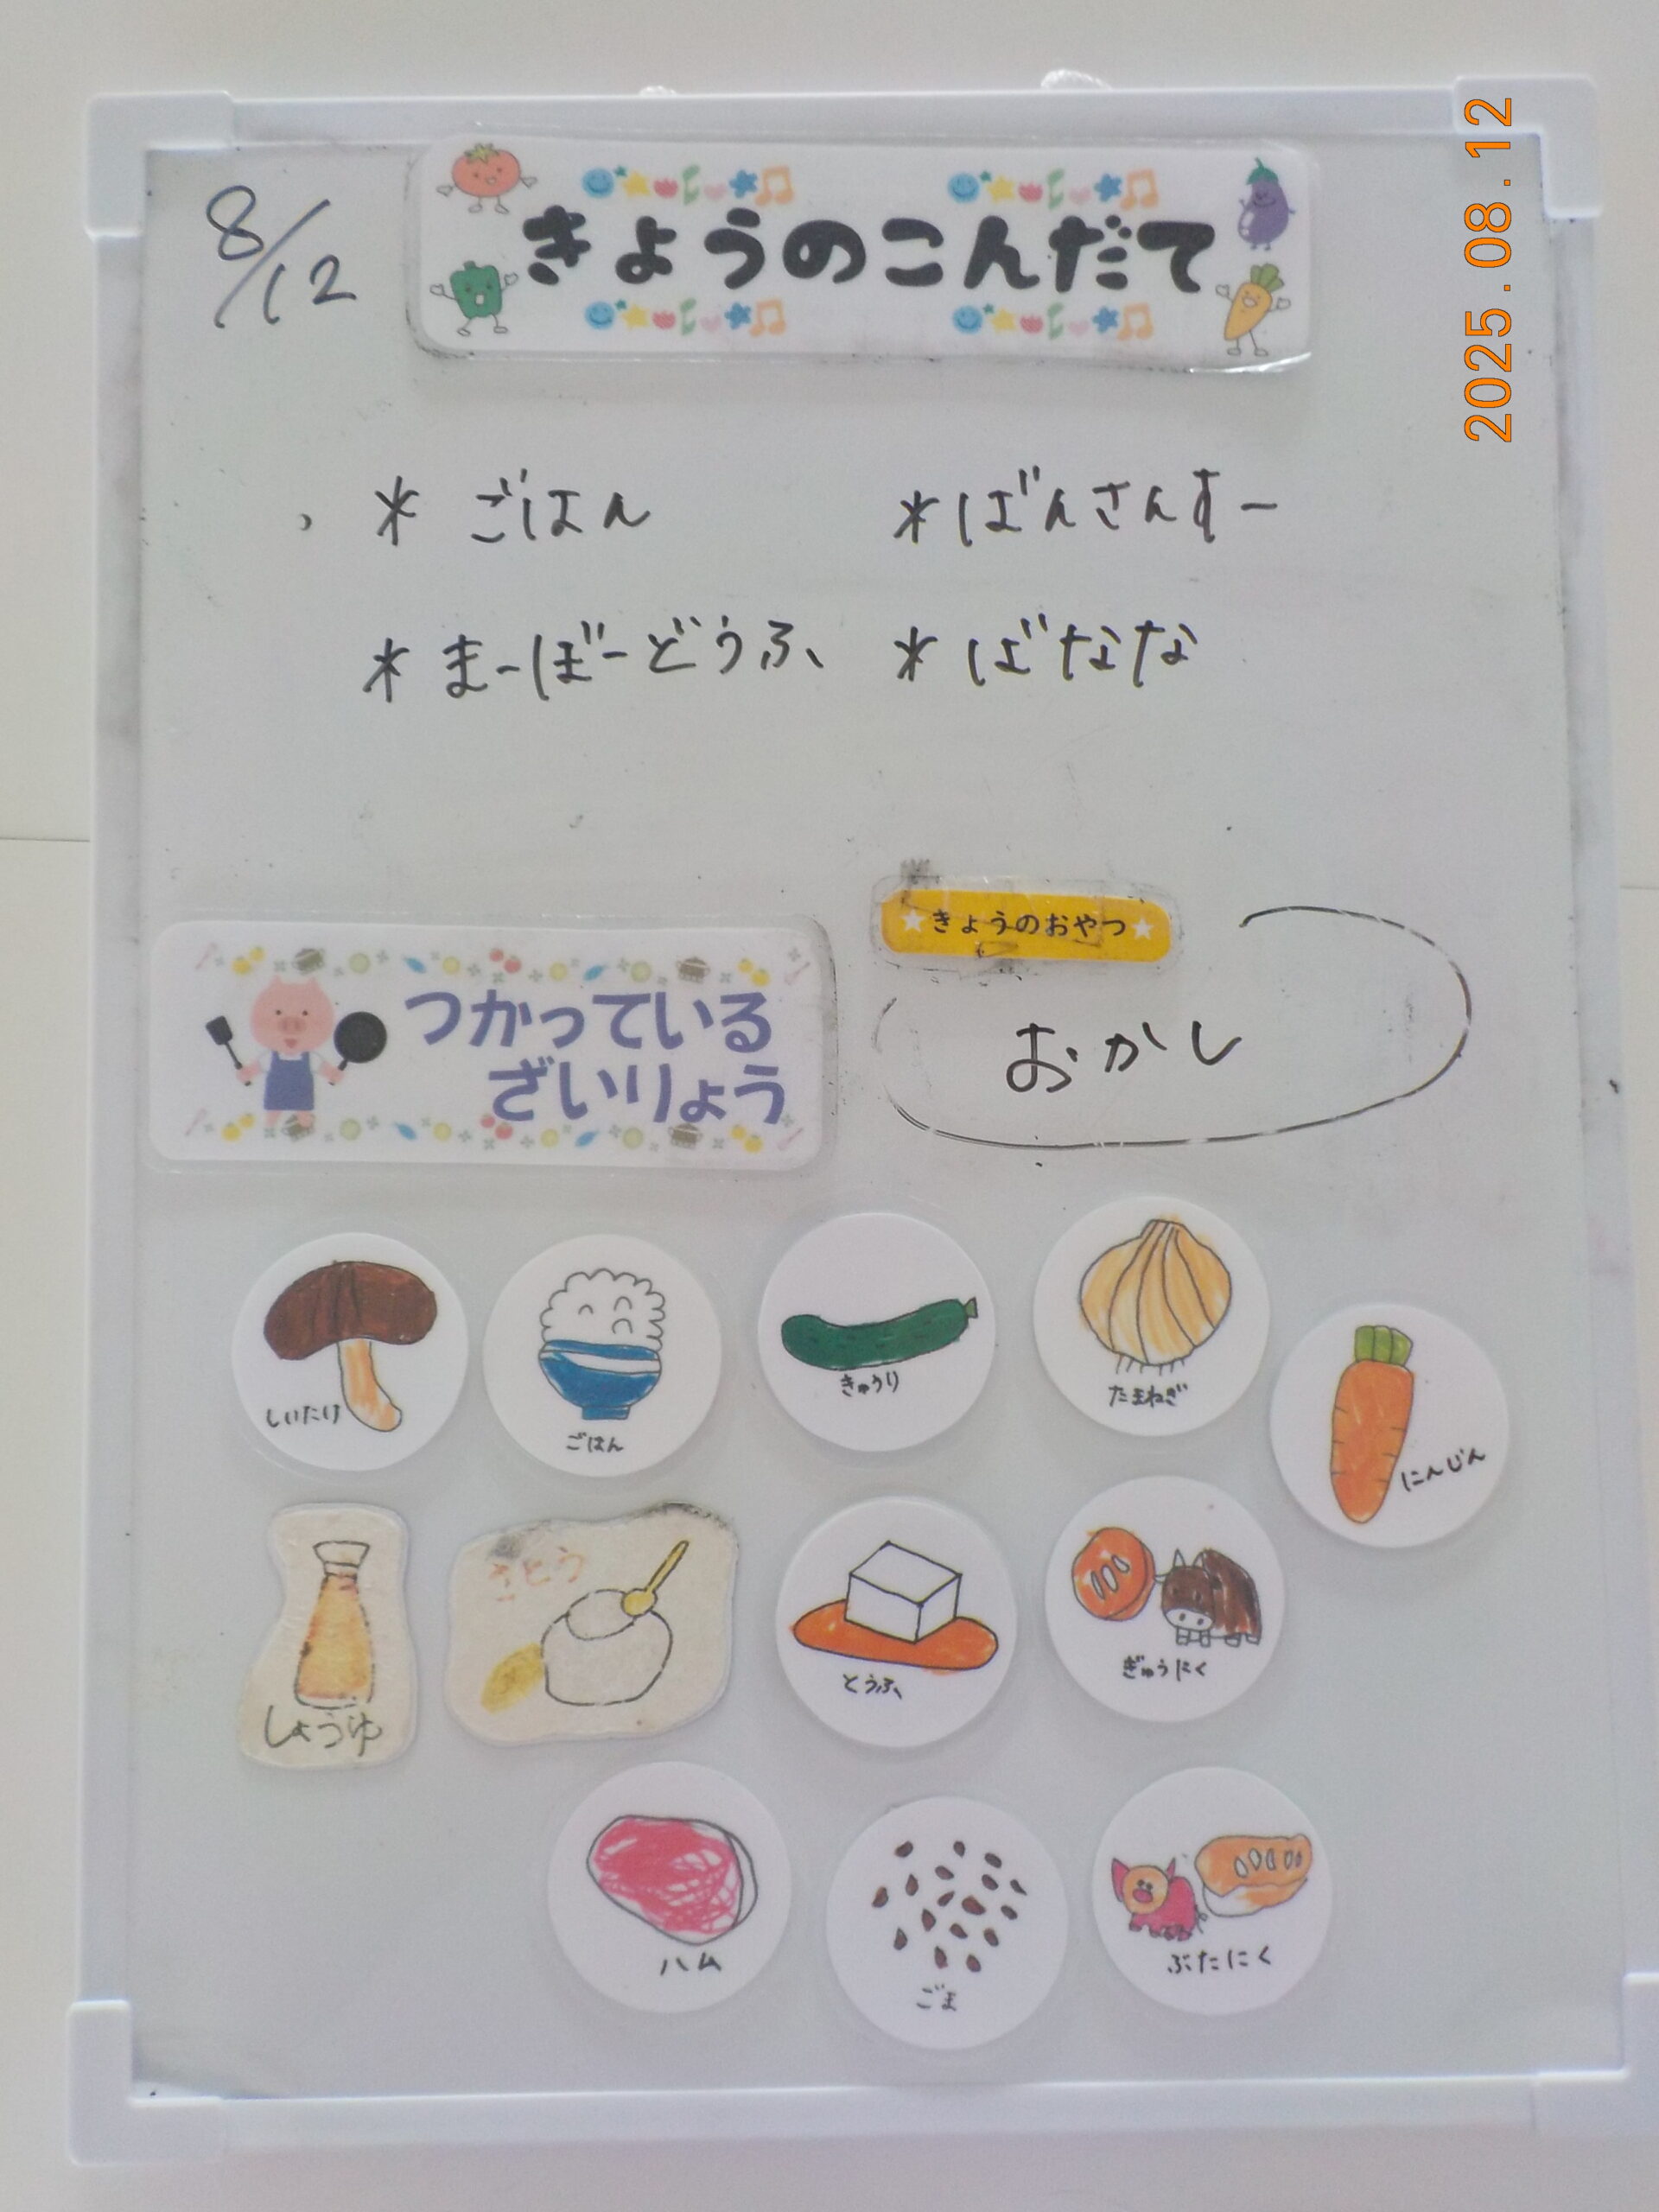 8/12
きょうのこんだて
2025.08.12
* ごはん
* ばんさんすー
* まーぼーどうふ
* ばなな
きょうのおやつ
おかし
つかっている
ざいりょう
しいたけ
ごはん
きゅうり
たまねぎ
にんじん
しょうゆ
さとう
とうふ
ぎゅうにく
ハム
ごま
ぶたにく